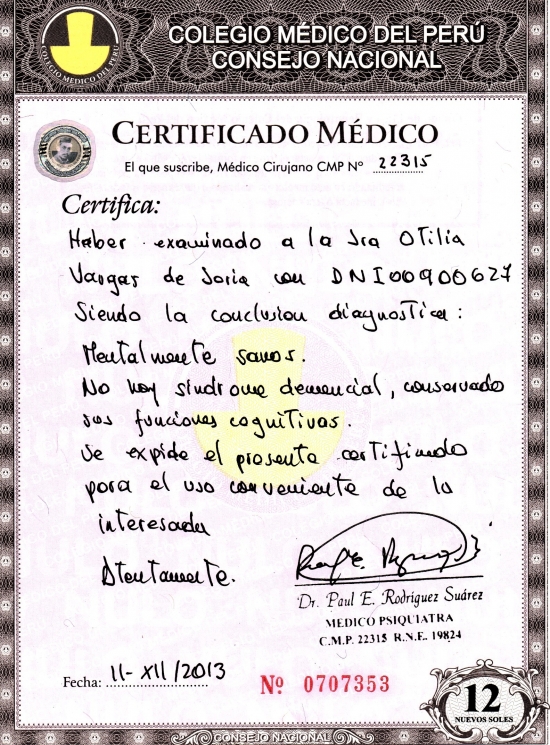 COLEGIO MÉDICO DEL PERÚ
CONSEJO NACIONAL
COLEGIO MEDICO DEL PERU
CERTIFICADO MÉDICO
El que suscribe, Médico Cirujano CMP Nº 22315
Certifica:
Haber examinado a la Sra Otilia
Vargas de Soria con DNI 00900627
Siendo la conclusion diagnostica:
Mentalmente sanos.
No hay sindrome demencial, conservado
sus funciones cognitivas.
Se expide el presente certificado
para el uso conveniente de la
interesada
Atentamente.
Dr. Paul E. Rodríguez Suárez
MEDICO PSIQUIATRA
C.M.P. 22315 R.N.E. 19824
Fecha: 11-XII/2013
Nº 0707353
12
NUEVOS SOLES
CONSEJO NACIONAL